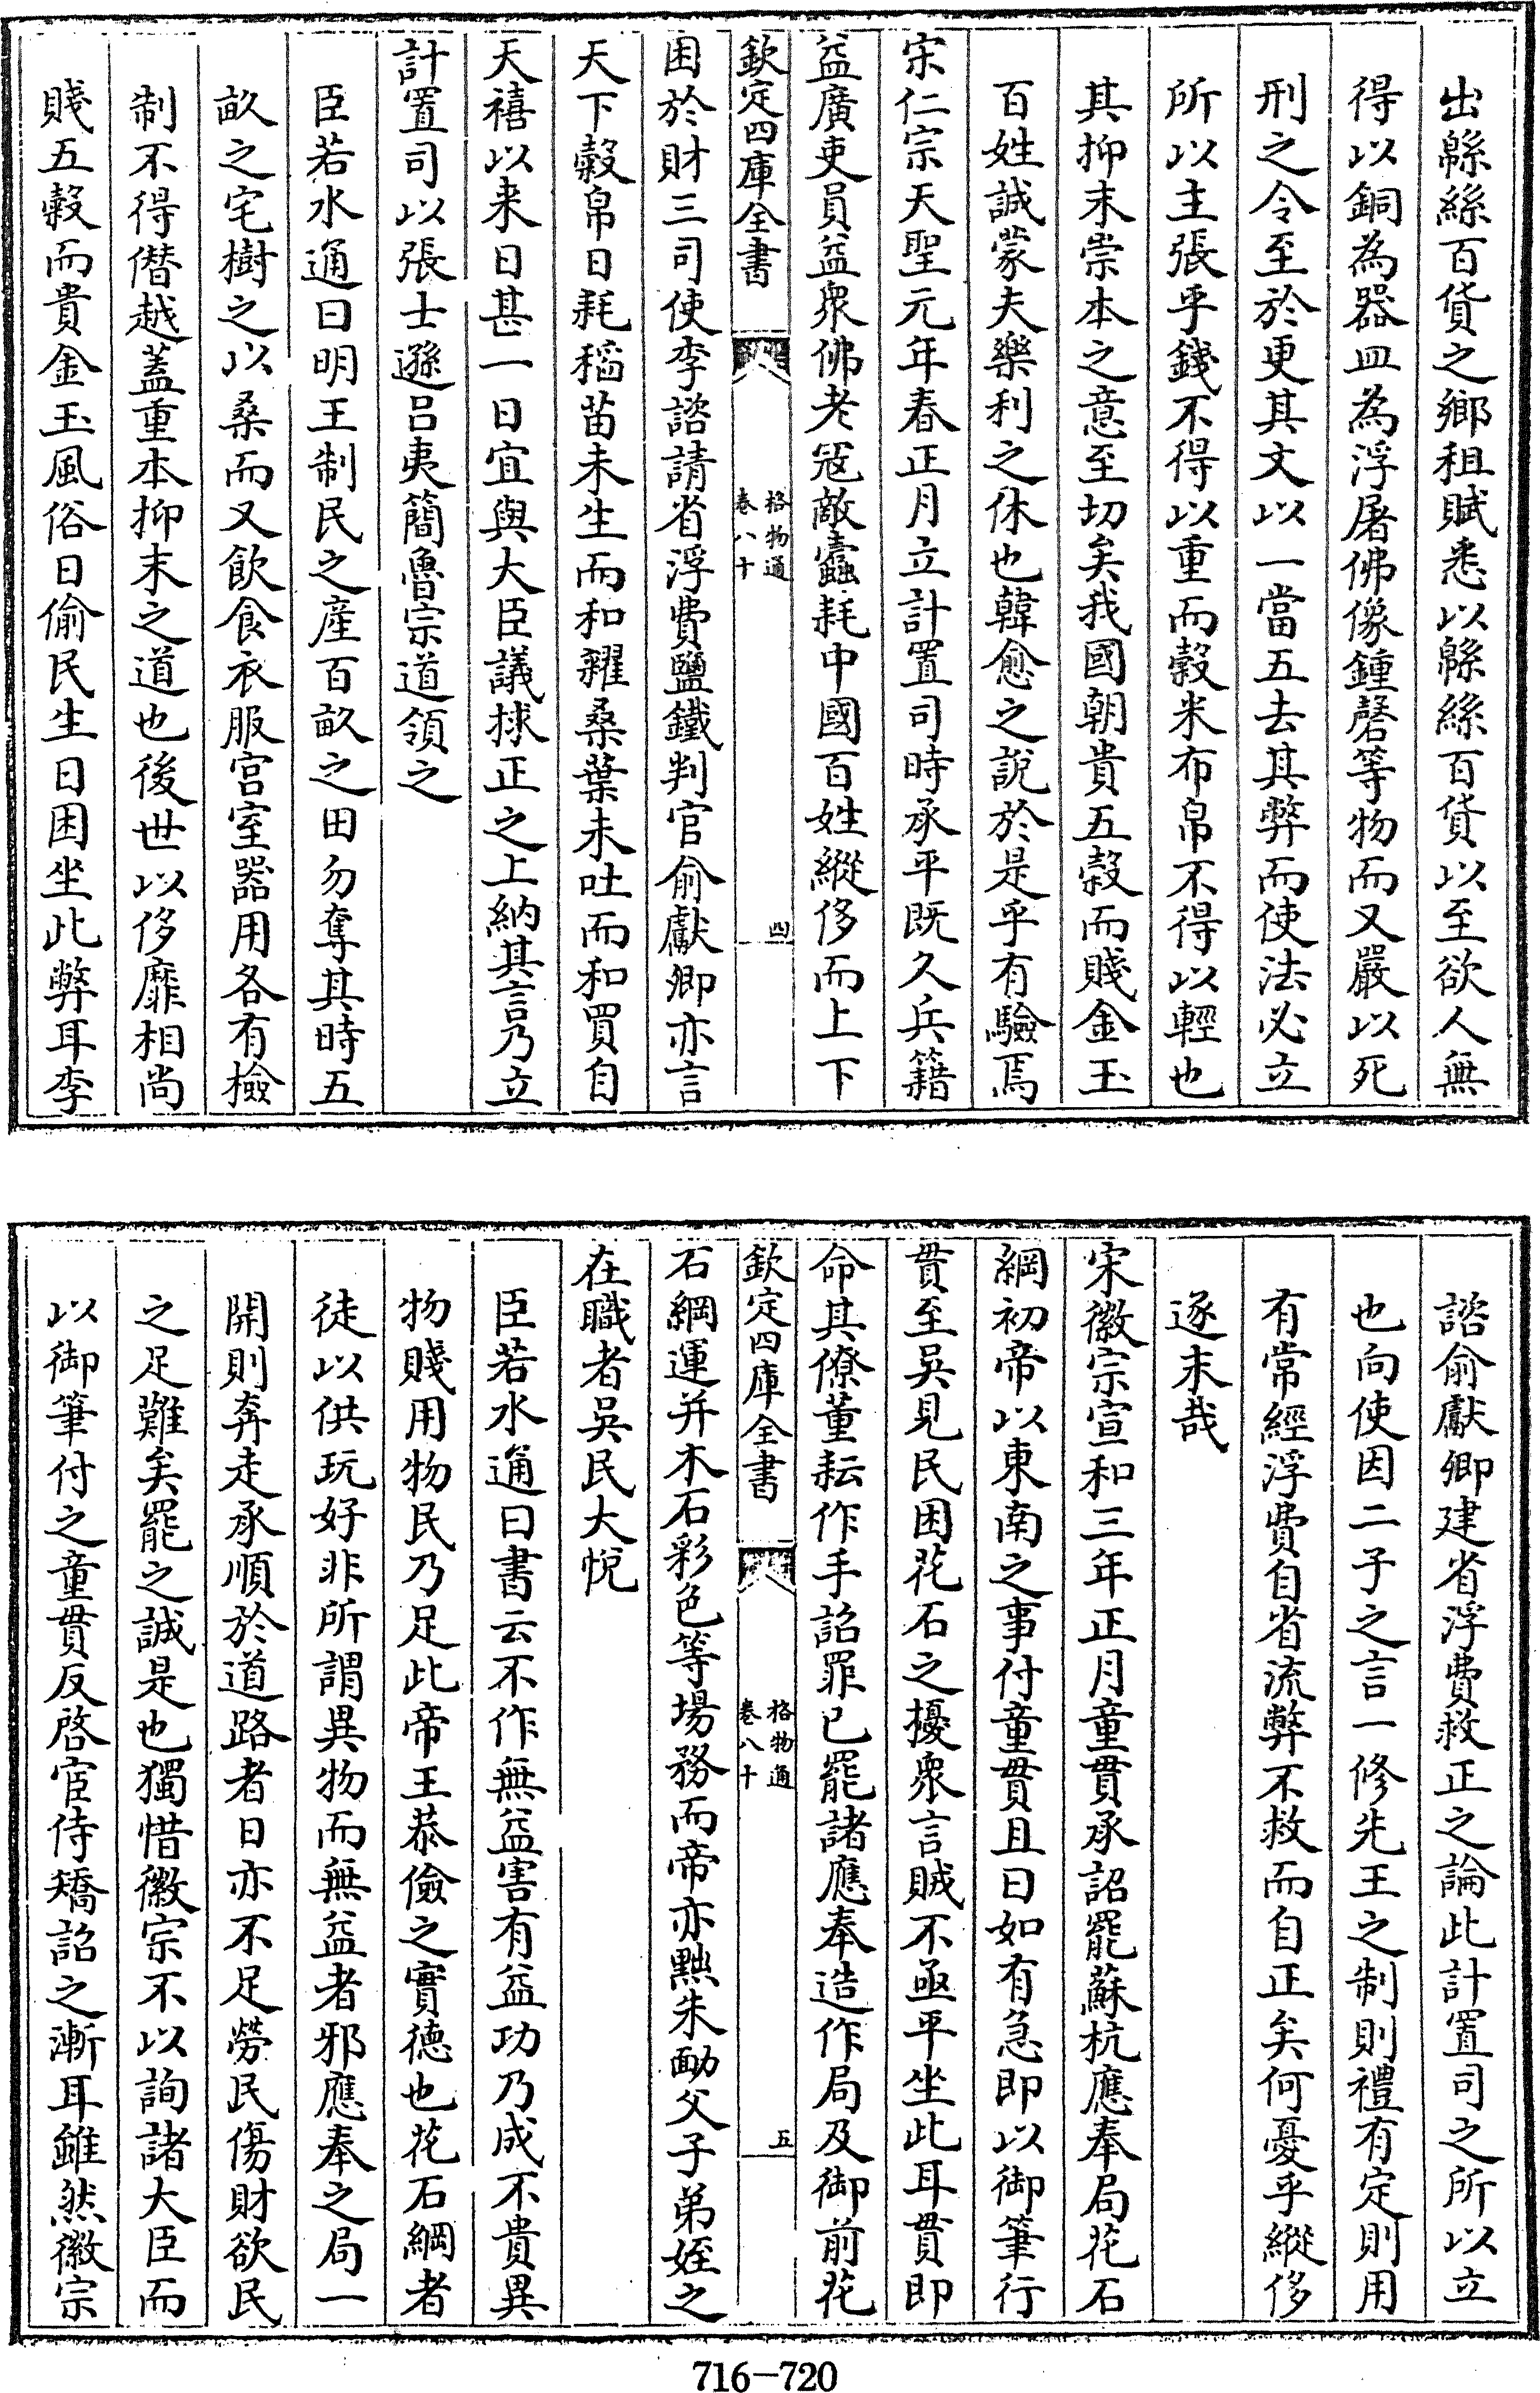 出緜絲百貨之鄉租賦悉以緜絲百貨以至欲人無
得以銅為器皿為浮屠佛像鍾磬等物而又嚴以死
刑之令至於更其文以一當五去其弊而使法必立
所以主張乎錢不得以重而穀米布帛不得以輕也
其抑末崇本之意至切矣我國朝貴五穀而賤金玉
百姓誠蒙夫樂利之休也韓愈之說於是乎有驗焉
宋仁宗天聖元年春正月立計置司時承平既久兵籍
益廣吏員益衆佛老冦敵蠧耗中國百姓縱侈而上下
欽定四庫全書
格物通
卷八十
四
困於財三司使李諮請省浮費鹽鐵判官俞獻卿亦言
天下穀帛日耗稻苗未生而和糴桑葉未吐而和買自
天禧以来日甚一日宜與大臣議捄正之上納其言乃立
計置司以張士遜吕夷簡魯宗道領之
臣若水通曰明王制民之産百畝之田勿奪其時五
畝之宅樹之以桑而又飲食衣服宫室器用各有檢
制不得僭越蓋重本抑末之道也後世以侈靡相尚
賤五穀而貴金玉風俗日偷民生日困坐此弊耳李
諮俞獻卿建省浮費救正之論此計置司之所以立
也向使因二子之言一修先王之制則禮有定則用
有常經浮費自省流弊不救而自正矣何憂乎縱侈
逐末哉
宋徽宗宣和三年正月童貫承詔罷蘇杭應奉局花石
綱初帝以東南之事付童貫且曰如有急即以御筆行
貫至吳見民困花石之擾衆言賊不亟平坐此耳貫即
命其僚董耘作手詔罪已罷諸應奉造作局及御前花
欽定四庫全書
格物通
卷八十
五
石綱運并木石彩色等場務而帝亦黜朱勔父子弟姪之
在職者吳民大悅
臣若水通曰書云不作無益害有益功乃成不貴異
物賤用物民乃足此帝王恭儉之實德也花石綱者
徒以供玩好非所謂異物而無益者邪應奉之局一
開則奔走承順於道路者日亦不足勞民傷財欲民
之足難矣罷之誠是也獨惜徽宗不以詢諸大臣而
以御筆付之童貫反啓宦侍矯詔之漸耳雖然徽宗
716-720